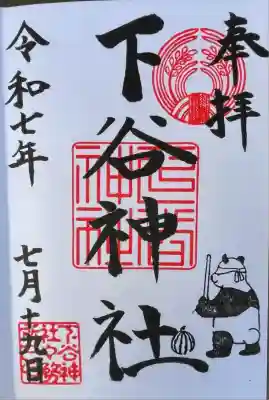 奉拝
下谷神社
令和七年
七月十九日
下谷神社